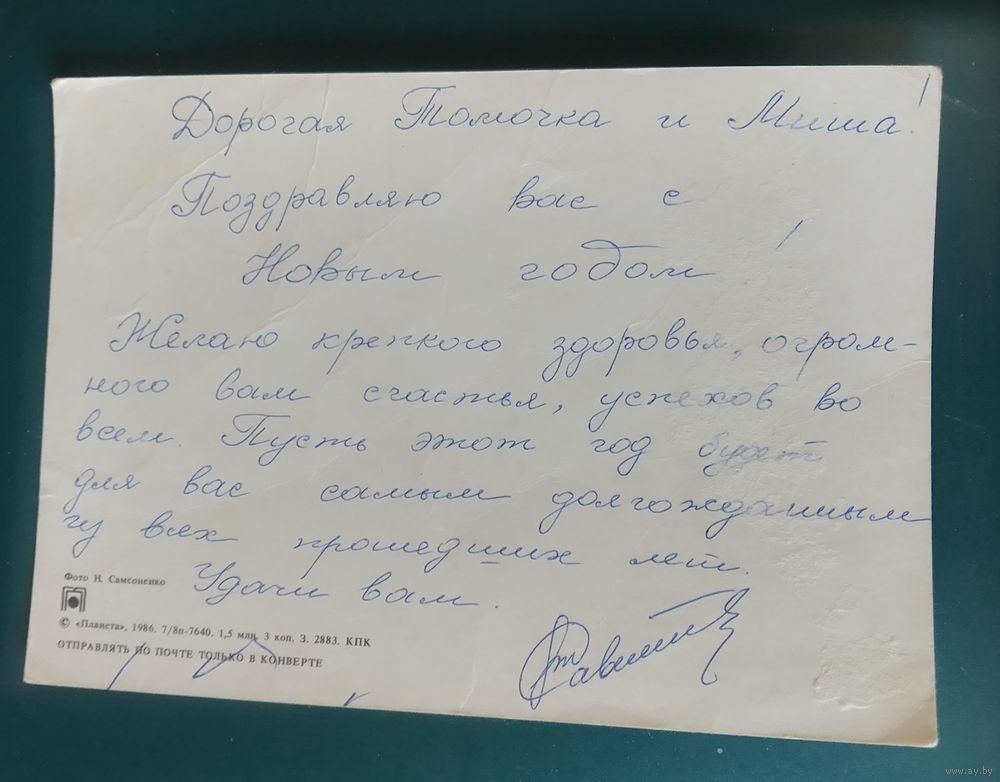 Дорогая Томочка и Миша!
Поздравляю вас с
Новым годом!
Желаю крепкого здоровья, огром-
ного вам счастья, успехов во
всем. Пусть этот год будет
для вас самым долгожданным
из всех прошедших лет.
Удачи вам.
Фото Н. Самсоненко
© «Планета», 1986. 7/8п-7640. 1,5 млн. 3 коп. З. 2883. КПК
ОТПРАВЛЯТЬ ПО ПОЧТЕ ТОЛЬКО В КОНВЕРТЕ
www.ay.by